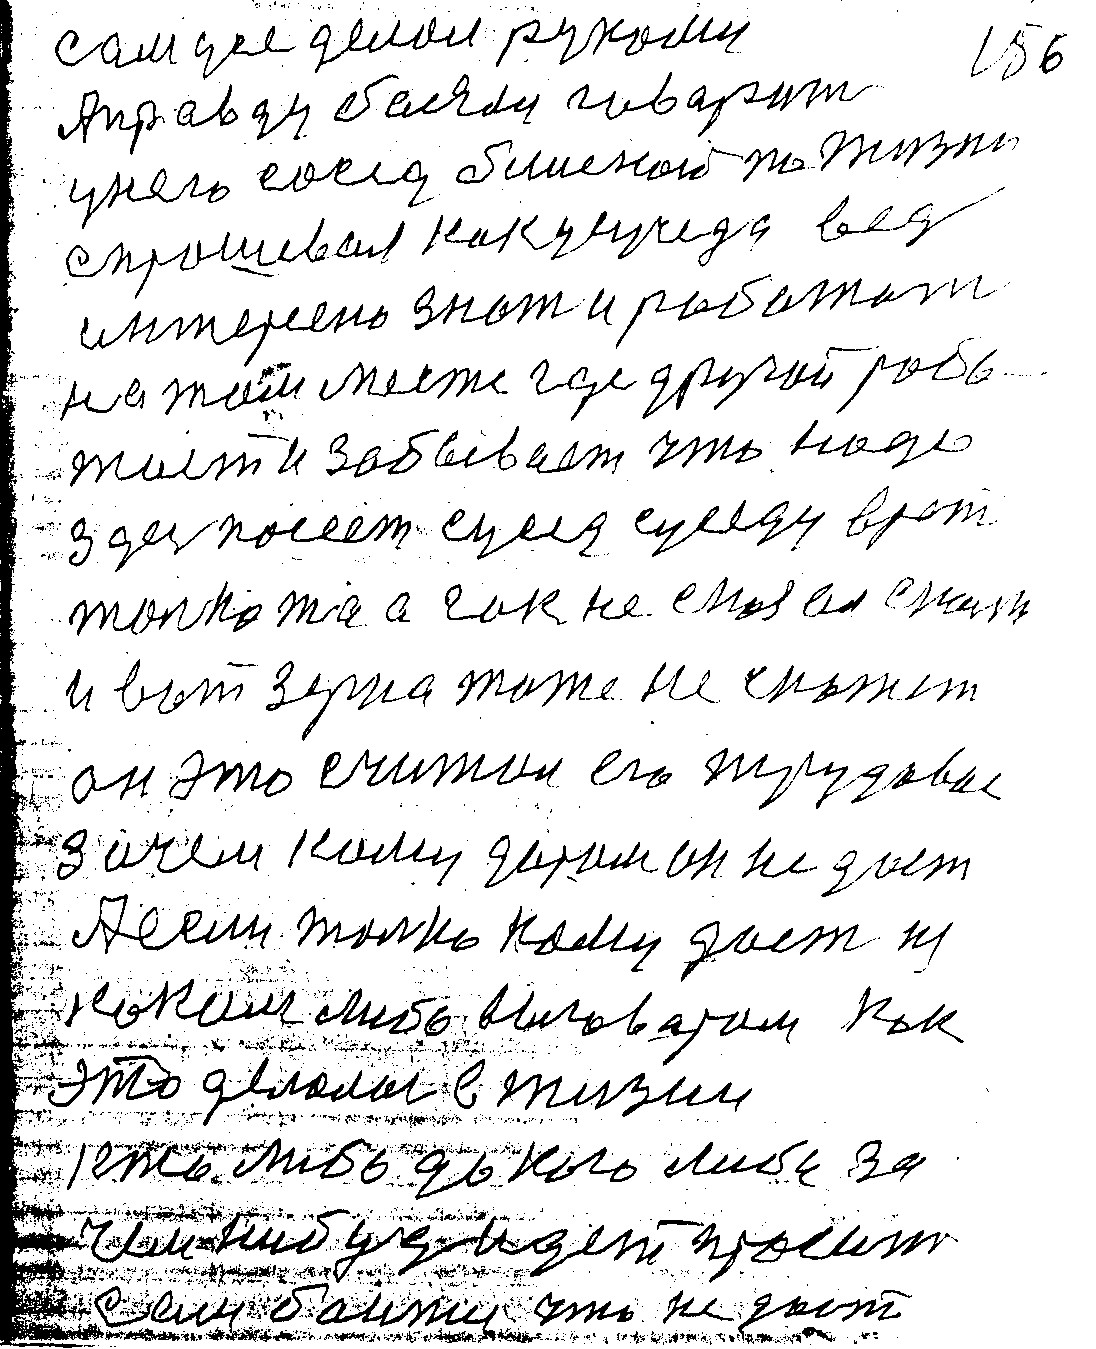 сам усе делал рукоми 156
Аправду баяли говарит
унего сосед бишеной по жизни
спрошевал как усуседа вед
интересно знат и работат
на том месте где другой рабо
тает и забывает что надо
здес посеет сусед суседу врот
толко та а гак не сказал
и вот зерна тоже не скажет
он это считал его трудавое
зачем кому даром он не дает
Аесли толко кому дает
каком либо выговаром как
это делалас в жизни
кто либо до кого либо за
чем нибуд идет просит
если что не дает